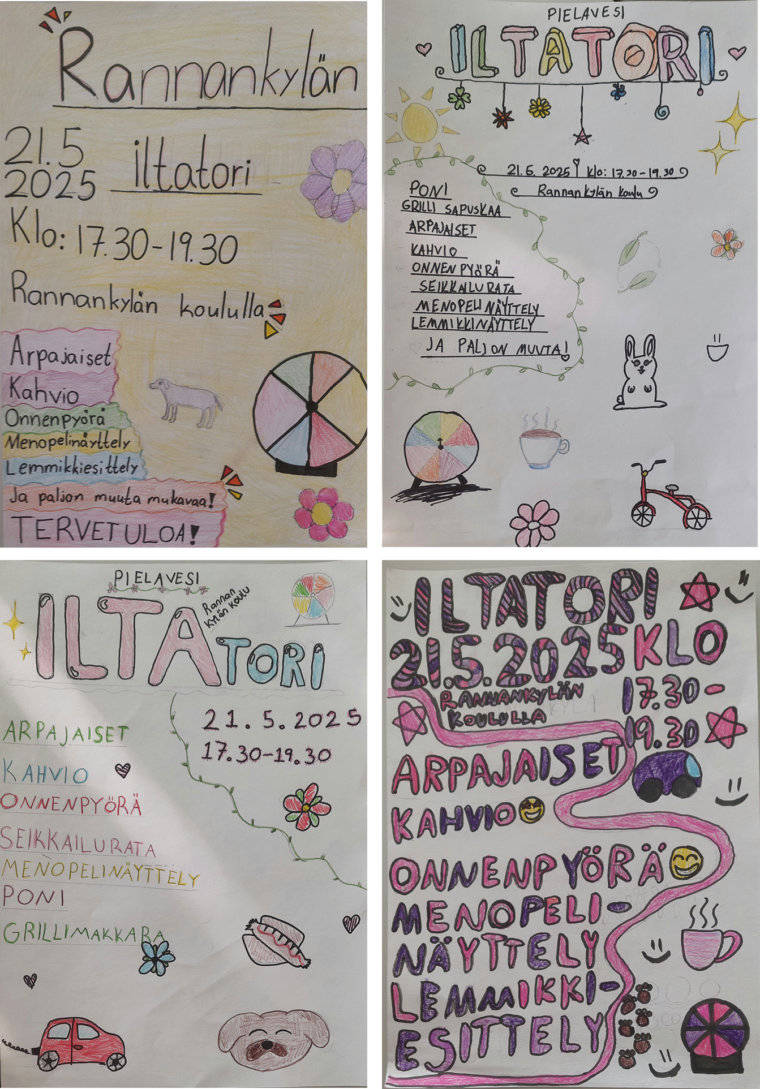 Rannankylän
21.5
2025
iltatori
Klo: 17.30-19.30
Rannankylän koululla
Arpajaiset
Kahvio
Onnenpyörä
Menopelinäyttely
Lemmikkiesittely
Ja paljon muuta mukavaa!
TERVETULOA!
PIELAVESI
ILTATORI
21.5.2025 Klo: 17.30-19.30
Rannankylän koulu
PONI
GRILLI SAPUSKAA
ARPAJAISET
KAHVIO
ONNENPYÖRÄ
SEIKKAILURATA
MENOPELINÄYTTELY
LEMMIKKINÄYTTELY
JA PALJON MUUTA!
PIELAVESI
ILTATORI
Rannan
kylän koulu
21.5.2025
17.30-19.30
ARPAJAISET
KAHVIO
ONNENPYÖRÄ
SEIKKAILURATA
MENOPELINÄYTTELY
PONI
GRILLIMAKKARA
ILTATORI
21.5.2025 KLO
RANNANKYLÄN
KOULULLA
17.30-
19.30
ARPAJAISET
KAHVIO
ONNENPYÖRÄ
MENOPELI-
NÄYTTELY
LEMMIKKI-
ESITTELY